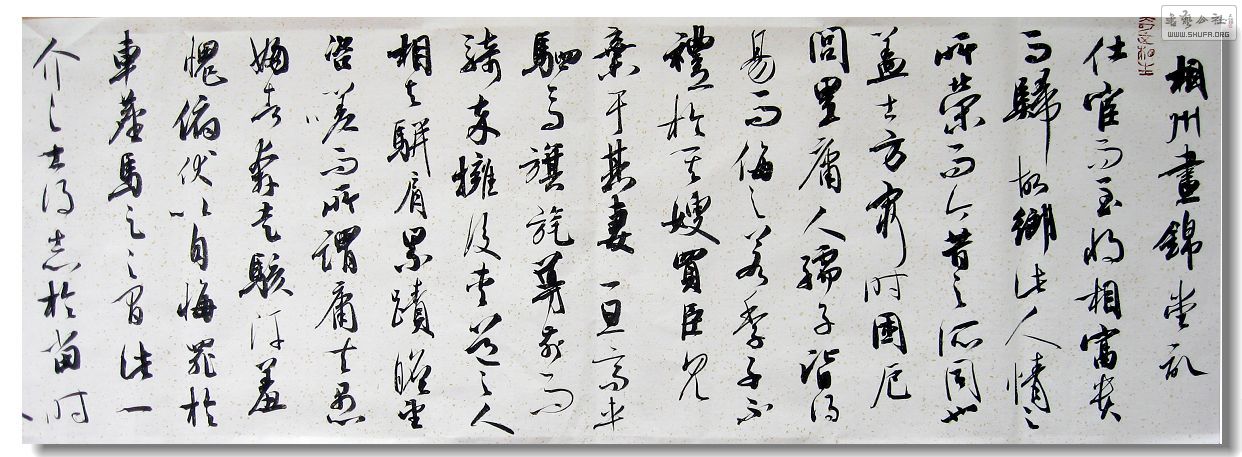 相州晝錦堂記
仕宦而至將相富貴
而歸故鄉此人情之
所榮而今昔之所同也
蓋士方窮時困厄
閭里庸人孺子皆得
易而侮之若季子不
禮於其嫂買臣見
棄于其妻一旦高車
駟馬旗旄導前而
騎卒擁後夾道之人
相與駢肩累蹟瞻望
咨嗟而所謂庸夫愚
婦者奔走駭汗羞
愧俯伏以自悔罪於
車塵馬足之間此一
介之士得志於當時
書藝公社
WWW.SHUFA.ORG